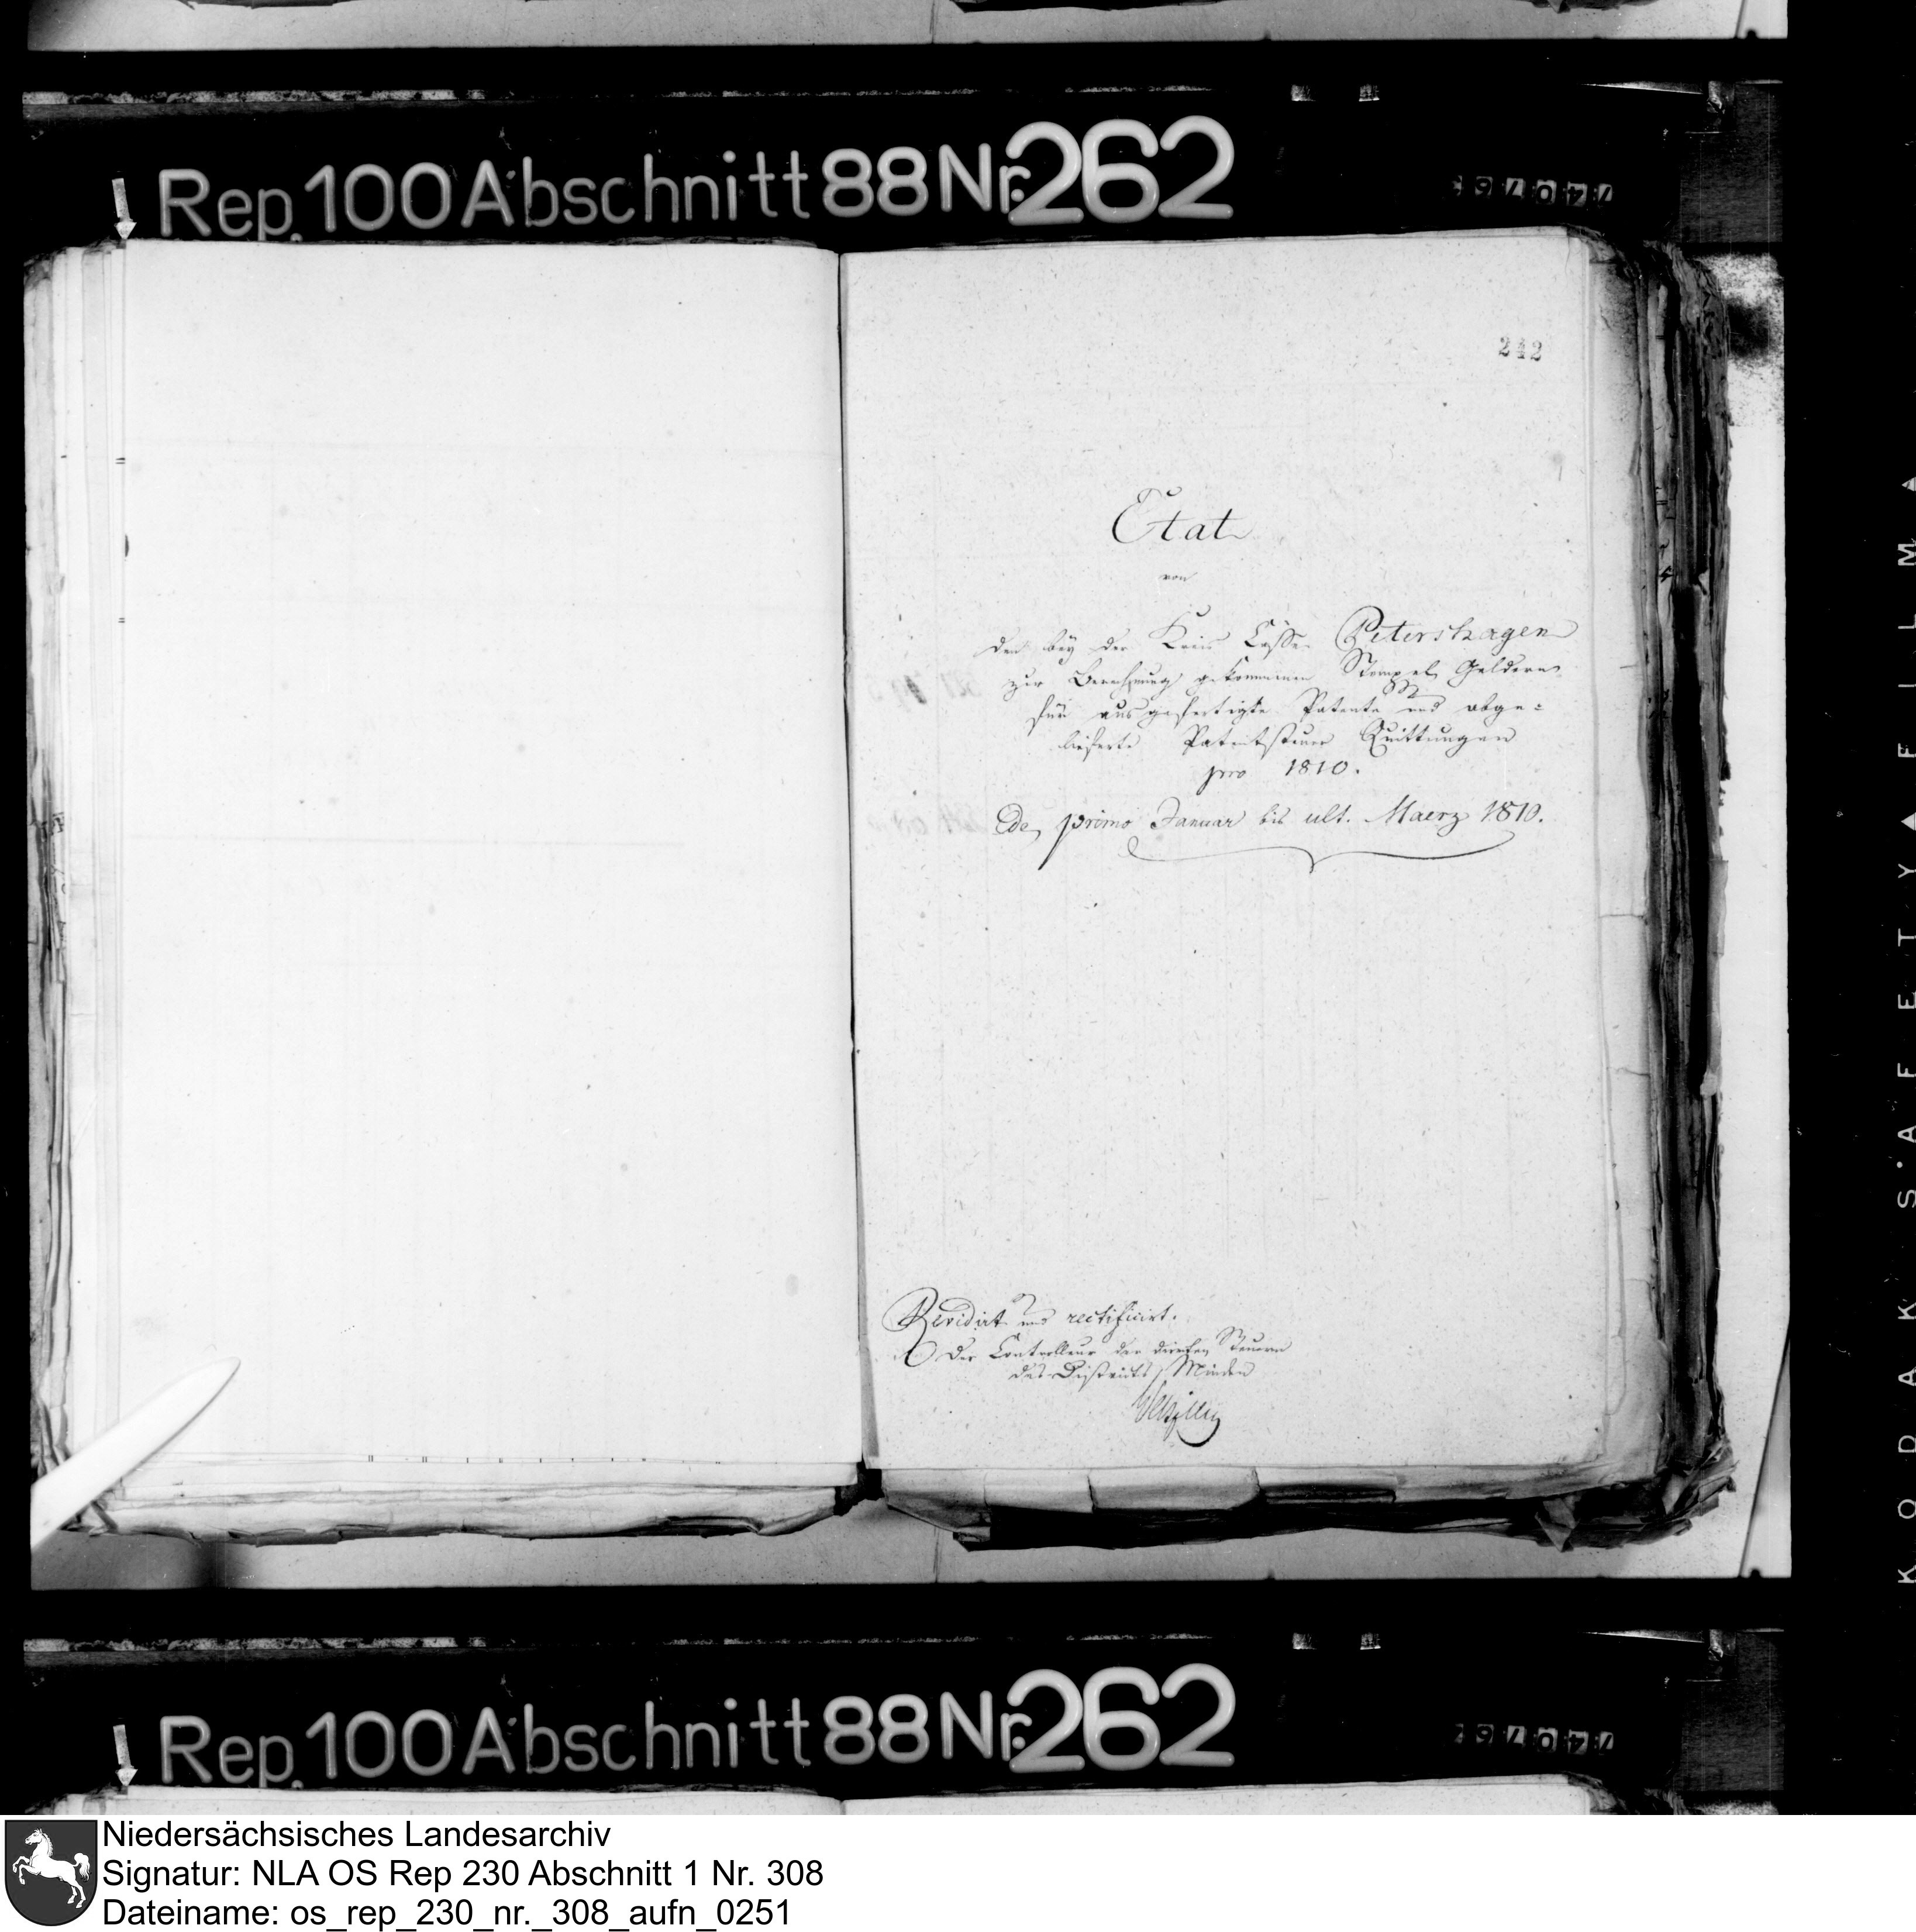 Rep. 100 Abschnitt 88 Nr. 262
242
Etat
von
den bey der Kreis Casse Petershagen
zur Berechnung gekommenen Stempel Geldern
für ausgefertigte Patente und abge=
lieferte Patentsteuer Quittungen
pro 1810.
de primo Januar bis ult. Maerz 1810.
Revidirt und rectificirt.
Der Controlleur der direkten Steuern
des Districts Minden
KODAK SAFETY FILM
Rep. 100 Abschnitt 88 Nr. 262
Niedersächsisches Landesarchiv
Signatur: NLA OS Rep 230 Abschnitt 1 Nr. 308
Dateiname: os_rep_230_nr._308_aufn_0251